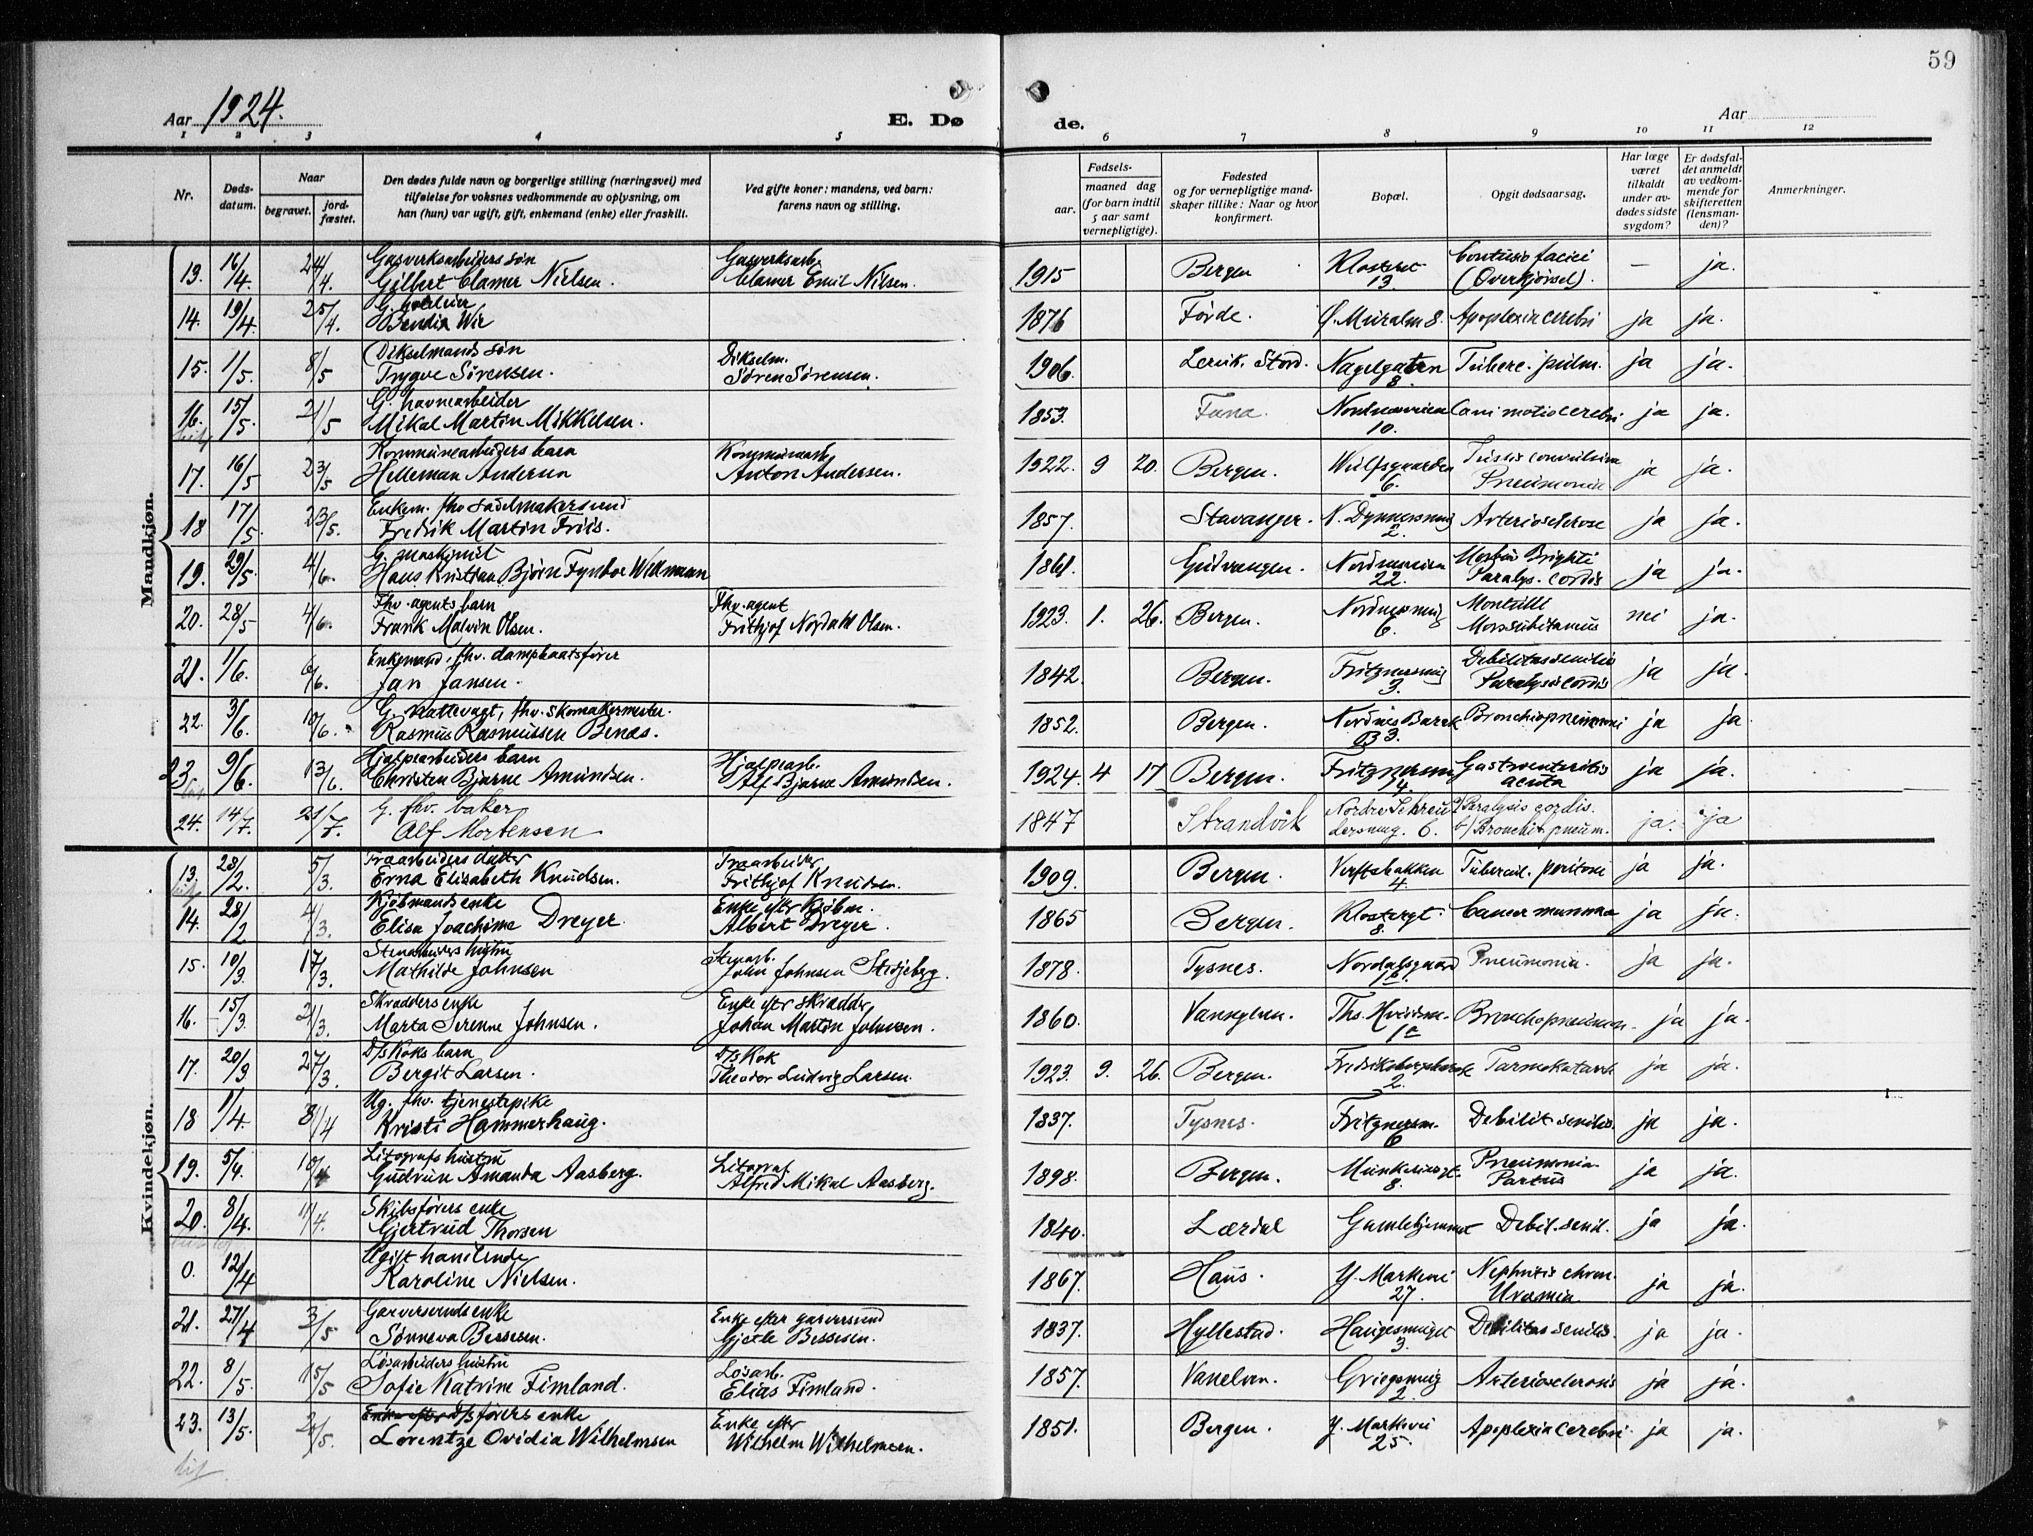 59
Aar 1924.
E. Dø
de.
Aar
1 2 3 4 5 6 7 8 9 10 11 12
Nr.
Døds-
datum.
Naar
begravet.
jord-
fæstet.
Den dødes fulde navn og borgerlige stilling (næringsvei) med
tilføielse for voksnes vedkommende av oplysning, om
han (hun) var ugift, gift, enkemand (enke) eller fraskilt.
Ved gifte koner: mandens, ved barn:
farens navn og stilling.
Fødsels-
aar.
maaned dag
(for barn indtil
5 aar samt
vernepligtige).
Fødested
og for vernepligtige mand-
skaper tillike: Naar og hvor
konfirmert.
Bopæl.
Opgit dødsaarsag.
Har læge
været
tilkaldt
under av-
dødes sidste
sygdom?
Er dødsfal-
det anmeldt
av vedkom-
mende for
skifteretten
(lensman-
den)?
Anmerkninger.
Mandkjøn.
Gasverksarbeiders søn Gasverksarb. Contusio faciei
13. 16/4 24/4. Gilbert Clamer Nielsen. Clamer Emil Nilsen. 1915 Bergen Klosteret 13. (Overkjørsel). — ja.
14. 19/4 25/4. Bendix Wie 1876 Førde. Ø. Muralm 8. Apoplexia cerebri ja ja.
Dikselmands søn Dikselm.
15. 1/5. 8/5 Trygve Sørensen. Søren Sørensen. 1906. Lervik. Stord. Nagelgaten 8. Tuberc. pulm. ja ja.
G. havnearbeider
16. 15/5. 21/5 Mikal Martin Mikkelsen. 1853. Fana. 10. ja ja.
Kommunearbeiders barn Kommunearb. Tussis convulsiva
17. 16/5 23/5 Helleman Andersen Anton Andersen. 1922. 9 20. Bergen. Wulfsgaarden 6. Pneumonia ja ja.
Enkem. fhv sadelmakersvend
18 17/5. 23/5. Fredrik Martin Friis. 1857. Stavanger. 2. Arteriosclerose ja ja.
G. maskinist Morbus Brighti
19. 29/5. 4/6. Hans Kristian Bjørn Fynboe Willmann 1861. Gudvangen. 22. Paralys. cordis ja ja.
Fhv. agents barn Fhv. agent
20. 28/5 4/6. Frank Malvin Olsen. Frithjof Nordahl Olsen. 1923. 1. 26. Bergen. Nordnesmug 6. Mors subitaneus nei ja.
Enkemand, fhv. dampbaatsfører Debilitas senilis
21. 1/6. 6/6. Jan Jansen. 1842. Bergen. Fritznersmug 3. Paralysis cordis ja ja
G. nattevagt, fhv. skomakermester.
22. 3/6. 10/6. Rasmus Rasmussen Benas. 1852. Bergen. Nordnes Barak B 3. Bronchopneumoni ja ja
Hjælpearbeiders barn Hjælpearb. Gastroenteritis
23. 9/6. 13/6. Christen Bjarne Amundsen. Alf Bjarne Amundsen. 1924 4 17 Bergen. Fritznersm 14. acuta ja ja.
G. fhv. baker a/ Paralysis cordis.
24. 14/7. 21/7. Alf Mortensen 1847 Strandvik Nordre Skreu- dersmug. 6. b/ Bronchit. pneum. ja. ja
Kvindekjøn.
13. 28/2. 5/3. Erna Elisabeth Knudsen. Frithjof Knudsen. 1909. Bergen. Verftsbakken 4 Tubercul. peritoni ja ja.
Kjøbmands enke Enke efter kjøbm.
14. 28/2 4/3. Elisa Joachime Dreyer. Albert Dreyer. 1865 Bergen. Klostergt. 8. Cancer mamma ja ja.
Stenarbeiders hustru Stenarb.
15. 10/3. 17/3. Mathilde Johnsen John Johnsen Stedjeberg. 1878. Tysnes. Nordalsgaard Pneumonia. ja ja.
Skrædders enke Enke efter skrædder
16. 15/3. 21/3. Marta Serenne Johnsen. Johan Martin Johnsen. 1860. Vanylven. Ths. Hvidsm. 1a Bronchopneumon. ja ja.
D/s Koks barn D/s Kok
17. 20/3 27/3. Bergit Larsen. Theodor Ludvig Larsen. 1923. 9. 26. Bergen. 2. Tarmokatarrh ja ja.
Ug. fhv. tjenestepike
18 1/4. 8/4 Kristi Hammerhaug. 1837. Tysnes. Fritznersm. 6 Debilit. senilis. ja ja.
Litografs hustru Litograf Pneumonia
19. 5/4. 10/4 Gudrun Amanda Aasberg. Alfred Mikal Aasberg. 1898. Bergen. 8. Partus ja ja.
Skibsførers enke
20. 8/4. 11/4. Gjertrud Thorsen 1840. Lærdal Gamlehjemmet Debil. senil. ja ja.
Ugift handlende Nephritis chron.
0. 12/4 Karoline Nielsen. 1867. Haus. Y. Markevei 27. Uræmia ja ja.
Garversvends enke Enke efter garversvend
21. 27/4 3/5 Sønneva Bessesen. Gjerle Bessesen. 1837. Hyllestad. Haugesmuget 3. Debilitas senilis. ja ja.
Løsarbeiders hustru Løsarb.
22. 8/5. 15/5 Sofie Katrine Fimland. Elias Fimland. 1857. Vanelven. Griegsmug 2 Arteriosclerosis ja ja.
Enke efter D/s førers enke Enke efter
23. 13/5. 21/5. Lorentze Ovidia Wilhelmsen Wilhelm Wilhelmsen. 1851. Bergen. Y. Markevei 25. Apoplexia cerebri ja ja.